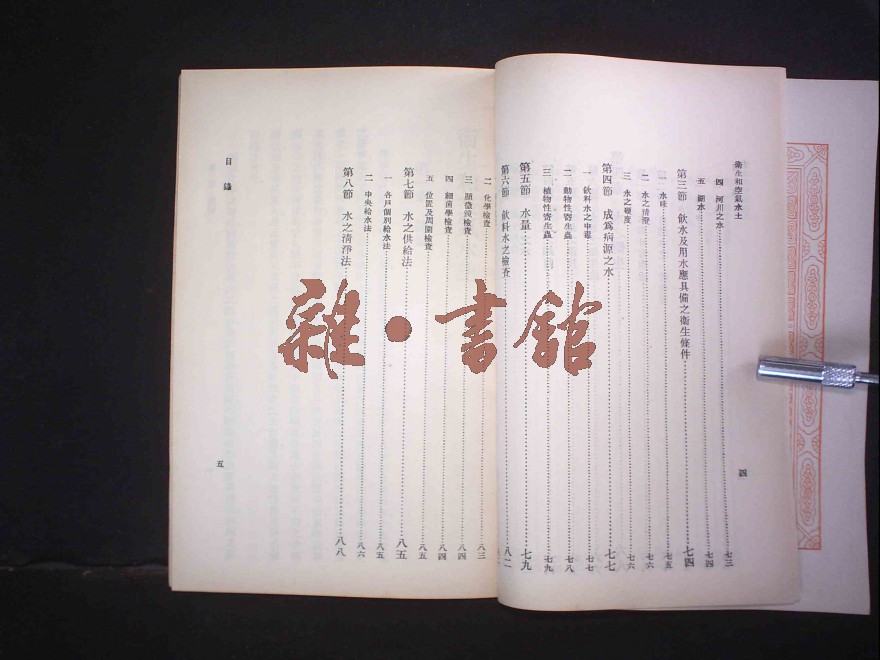 衛生和空氣水土
四 河川之水 七三
五 湖水 七四
第三節 飲水及用水應具備之衛生條件 七四
一 水味 七五
二 水之清澄 七六
三 水之硬度 七六
第四節 成爲病源之水 七七
一 飲料水之中毒 七七
二 動物性寄生蟲 七八
三 植物性寄生蟲 七九
第五節 水量 七九
第六節 飲料水之檢查 八二
四
二 化學檢查 八三
三 顯微鏡檢查 八四
四 細菌學檢查 八四
五 位置及周圍檢查 八五
第七節 水之供給法 八五
一 各戶個別給水法 八五
二 中央給水法 八六
第八節 水之清淨法 八八
目錄
五
雜·書館